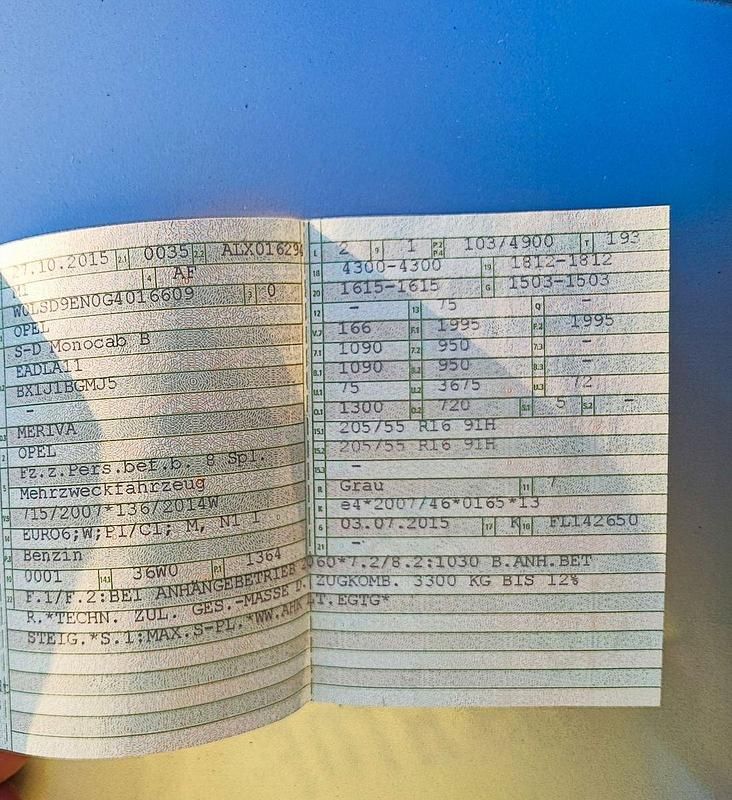 27.10.2015 2.1 0035 2.2 ALX01629
M1 4 AF
W0LSD9EN0G4016609 3 0
OPEL
S-D Monocab B
EADLA11
BX1J1BGMJ5
-
MERIVA
OPEL
Fz.z.Pers.bef.b. 8 Spl.
Mehrzweckfahrzeug
715/2007*136/2014W
EURO6;W;P1/C1; M, N1 I
Benzin
0001 14.1 36W0 P.1 1364
22 F.1/F.2:BEI ANHÄNGEBETRIEB 2060*7.2/8.2:1030 B.ANH.BET
R.*TECHN. ZUL. GES.-MASSE D. ZUGKOMB. 3300 KG BIS 12%
STEIG.*S.1:MAX.S-PL.*WW.AHK LT.EGTG*
L 2 9 1 P.2 P.4 103/4900 T 193
18 4300-4300 19 1812-1812
20 1615-1615 G 1503-1503
12 - 13 75 Q -
V.7 166 F.1 1995 F.2 1995
7.1 1090 7.2 950 7.3 -
8.1 1090 8.2 950 8.3 -
U.1 75 U.2 3675 U.3 72
O.1 1300 O.2 720 S.1 5 S.2 -
15.1 205/55 R16 91H
15.2 205/55 R16 91H
15.3 -
R Grau 11 7
K e4*2007/46*0165*13
6 03.07.2015 17 K 16 FL142650
21 -